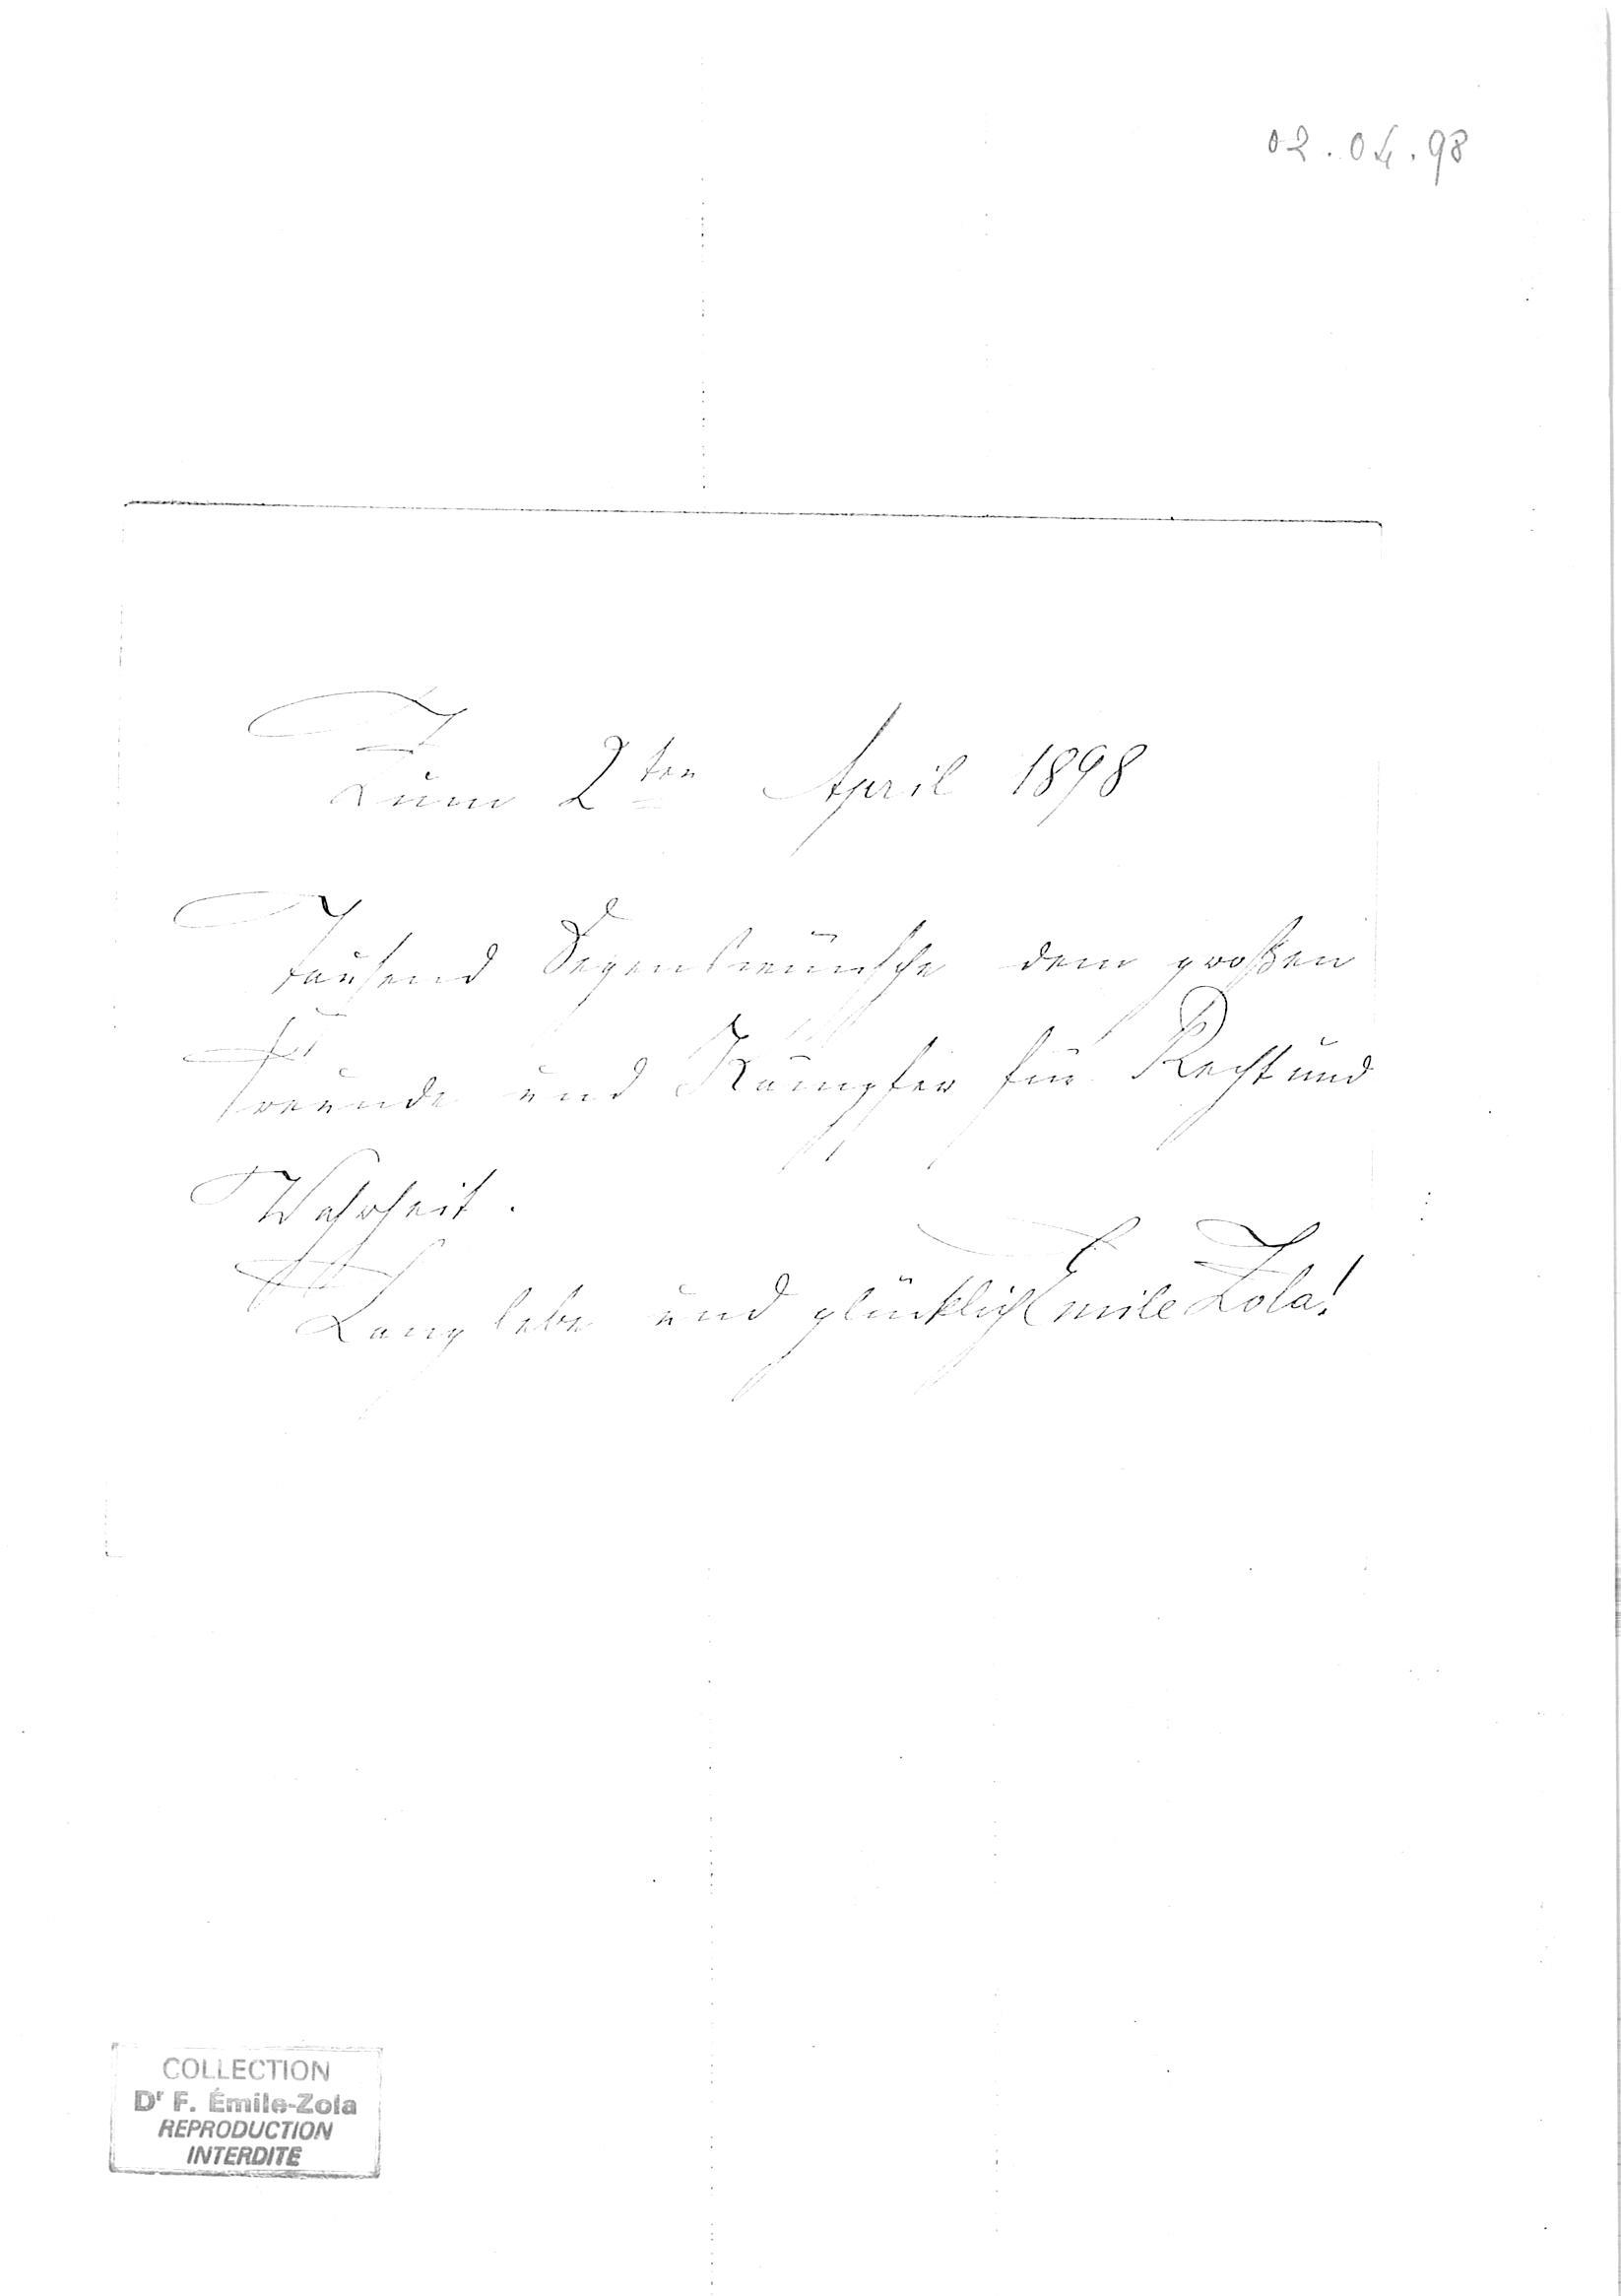 02.04.98
Zum 2ten April 1898
Tausend Segenswünsche dem großen
Freunde und Kämpfer für Recht und
Wahrheit.
Lang lebe und glücklich Emile Zola!
COLLECTION
Dr F. Émile-Zola
REPRODUCTION
INTERDITE